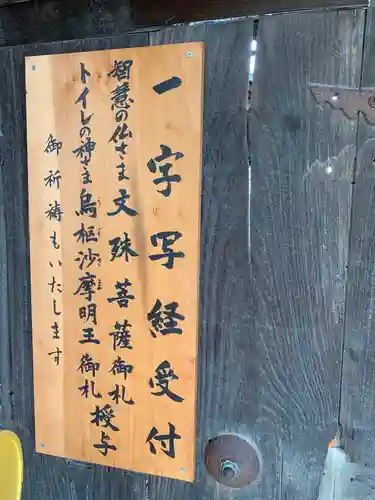 一字写経受付
智慧の仏さま 文殊菩薩御札
トイレの神さま 烏枢沙摩明王御札 授与
うすさま
御祈祷もいたします